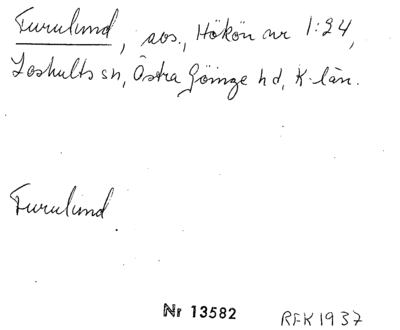 Furulund, avs., Hökön nr 1:24,
Loshults sn, Östra Göinge hd, K-län.
Furulund.
Nr 13582 RFK 1937